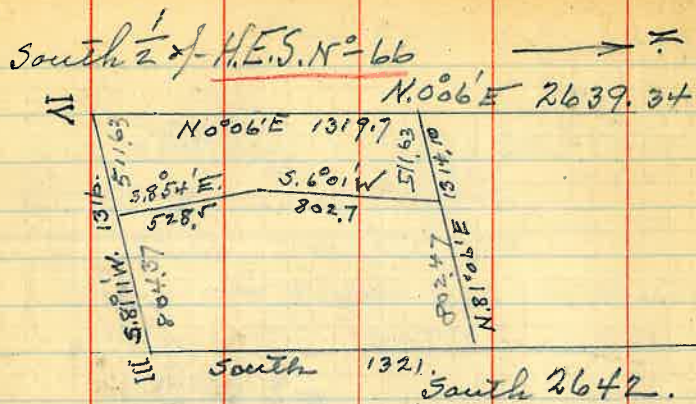 South 1/2 of H.E.S. Nº 66
N
IV
N.0°06'E 2639.34
N.0°06'E 1319.7
1316.
511.63
S.8°54'E.
528.5
S.6°01'W
802.7
511.63
1314.10
S.81°11'W.
804.37
802.47
N.81°06'E
III
South 1321.
South 2642.